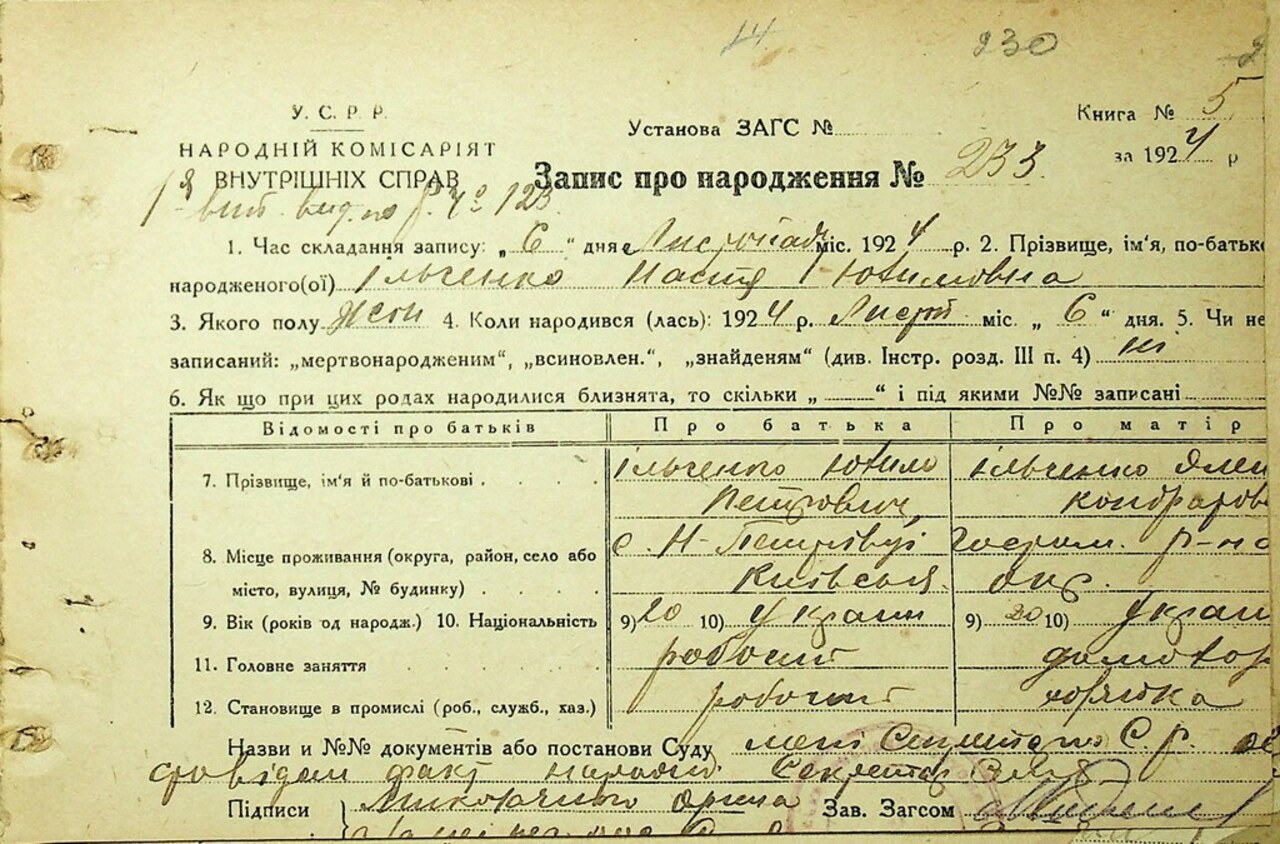 14
230
У. С. Р. Р.
НАРОДНІЙ КОМІСАРІЯТ
ВНУТРІШНІХ СПРАВ
Установа ЗАГС №
Книга № 5
за 1924 р
Запис про народження № 233.
1. Час складання запису: „ 6 “ дня Листопад міс. 1924 р. 2. Прізвище, ім'я, по-батьков
народженого(ої) Ільченко Настя Юхимовна
3. Якого полу жон 4. Коли народився (лась): 1924 р. Листоп міс. „ 6 “ дня. 5. Чи не
записаний: „мертвонародженим“, „всиновлен.“, „знайденям“ (див. Інстр. розд. III п. 4) ні
6. Як що при цих родах народилися близнята, то скільки „ “ і під якими №№ записані
Відомості про батьків Про батька Про матір
7. Прізвище, ім'я й по-батькові Ільченко Юхим Ільченко Олен
Петрович, Кондратов
8. Місце проживання (округа, район, село або с. Н-Петрівці Гостом. р-на
місто, вулиця, № будинку) Київська окр.
9. Вік (років од народж.) 10. Національність 9) 20 10) Україн 9) 20 10) Украї
11. Головне заняття робочий домогос
12. Становище в промислі (роб., служб., хаз.) робочий
Назви и №№ документів або постанови Суду С. Р.
факт народж. Секретар
Підписи Зав. Загсом